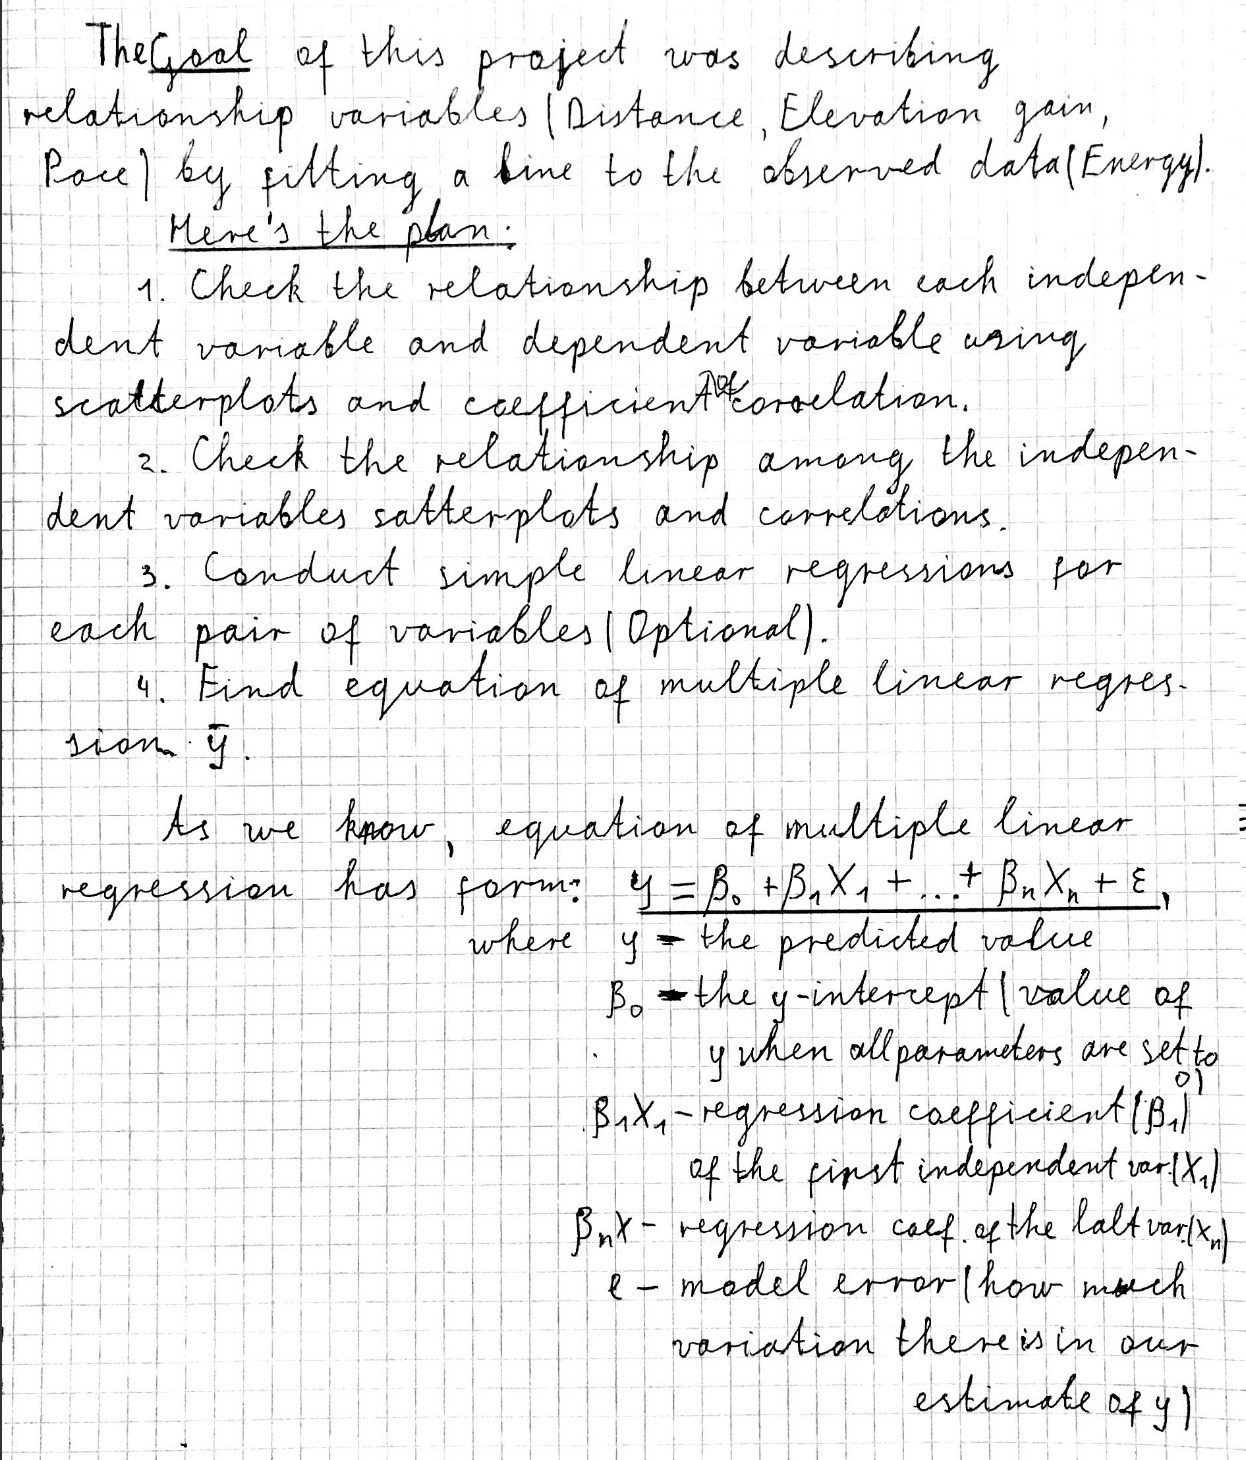 The Goal of this project was describing
relationship variables (Distance, Elevation gain,
Pace) by fitting a line to the observed data (Energy).
Here's the plan:
1. Check the relationship between each indepen-
dent variable and dependent variable using
scatterplots and coefficient of correlation.
2. Check the relationship among the indepen-
dent variables satterplots and correlations.
3. Conduct simple linear regressions for
each pair of variables (Optional).
4. Find equation of multiple linear regres-
sion ȳ.
As we know, equation of multiple linear
regression has form: y = β₀ + β₁X₁ + ... + βₙXₙ + ε,
where y - the predicted value
β₀ - the y-intercept (value of
y when all parameters are set to
0)
β₁X₁ - regression coefficient (β₁)
of the first independent var. (X₁)
βₙX - regression coef. of the lalt var. (Xₙ)
e - model error (how much
variation there is in our
estimate of y)